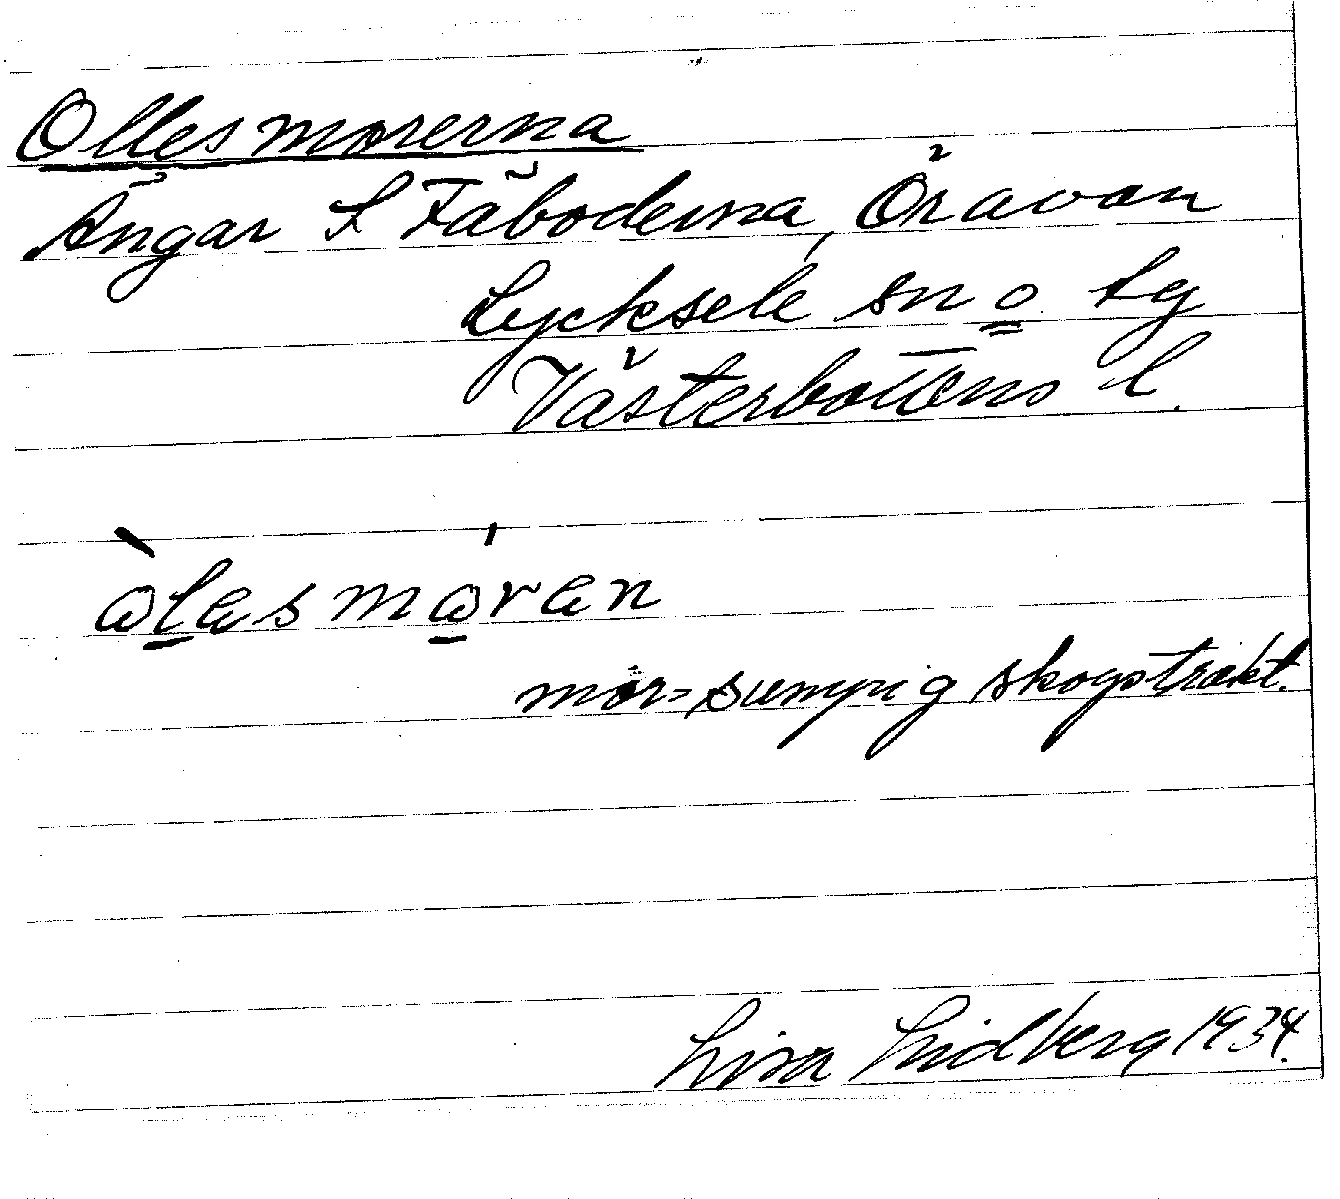 Ollesmorerna
Ängar S Fäboderna, Öravan
Lycksele sn o lg
Västerbottens l.
òlesmóren
mor = sumpig skogstrakt.
Lisa Lidberg 1934.